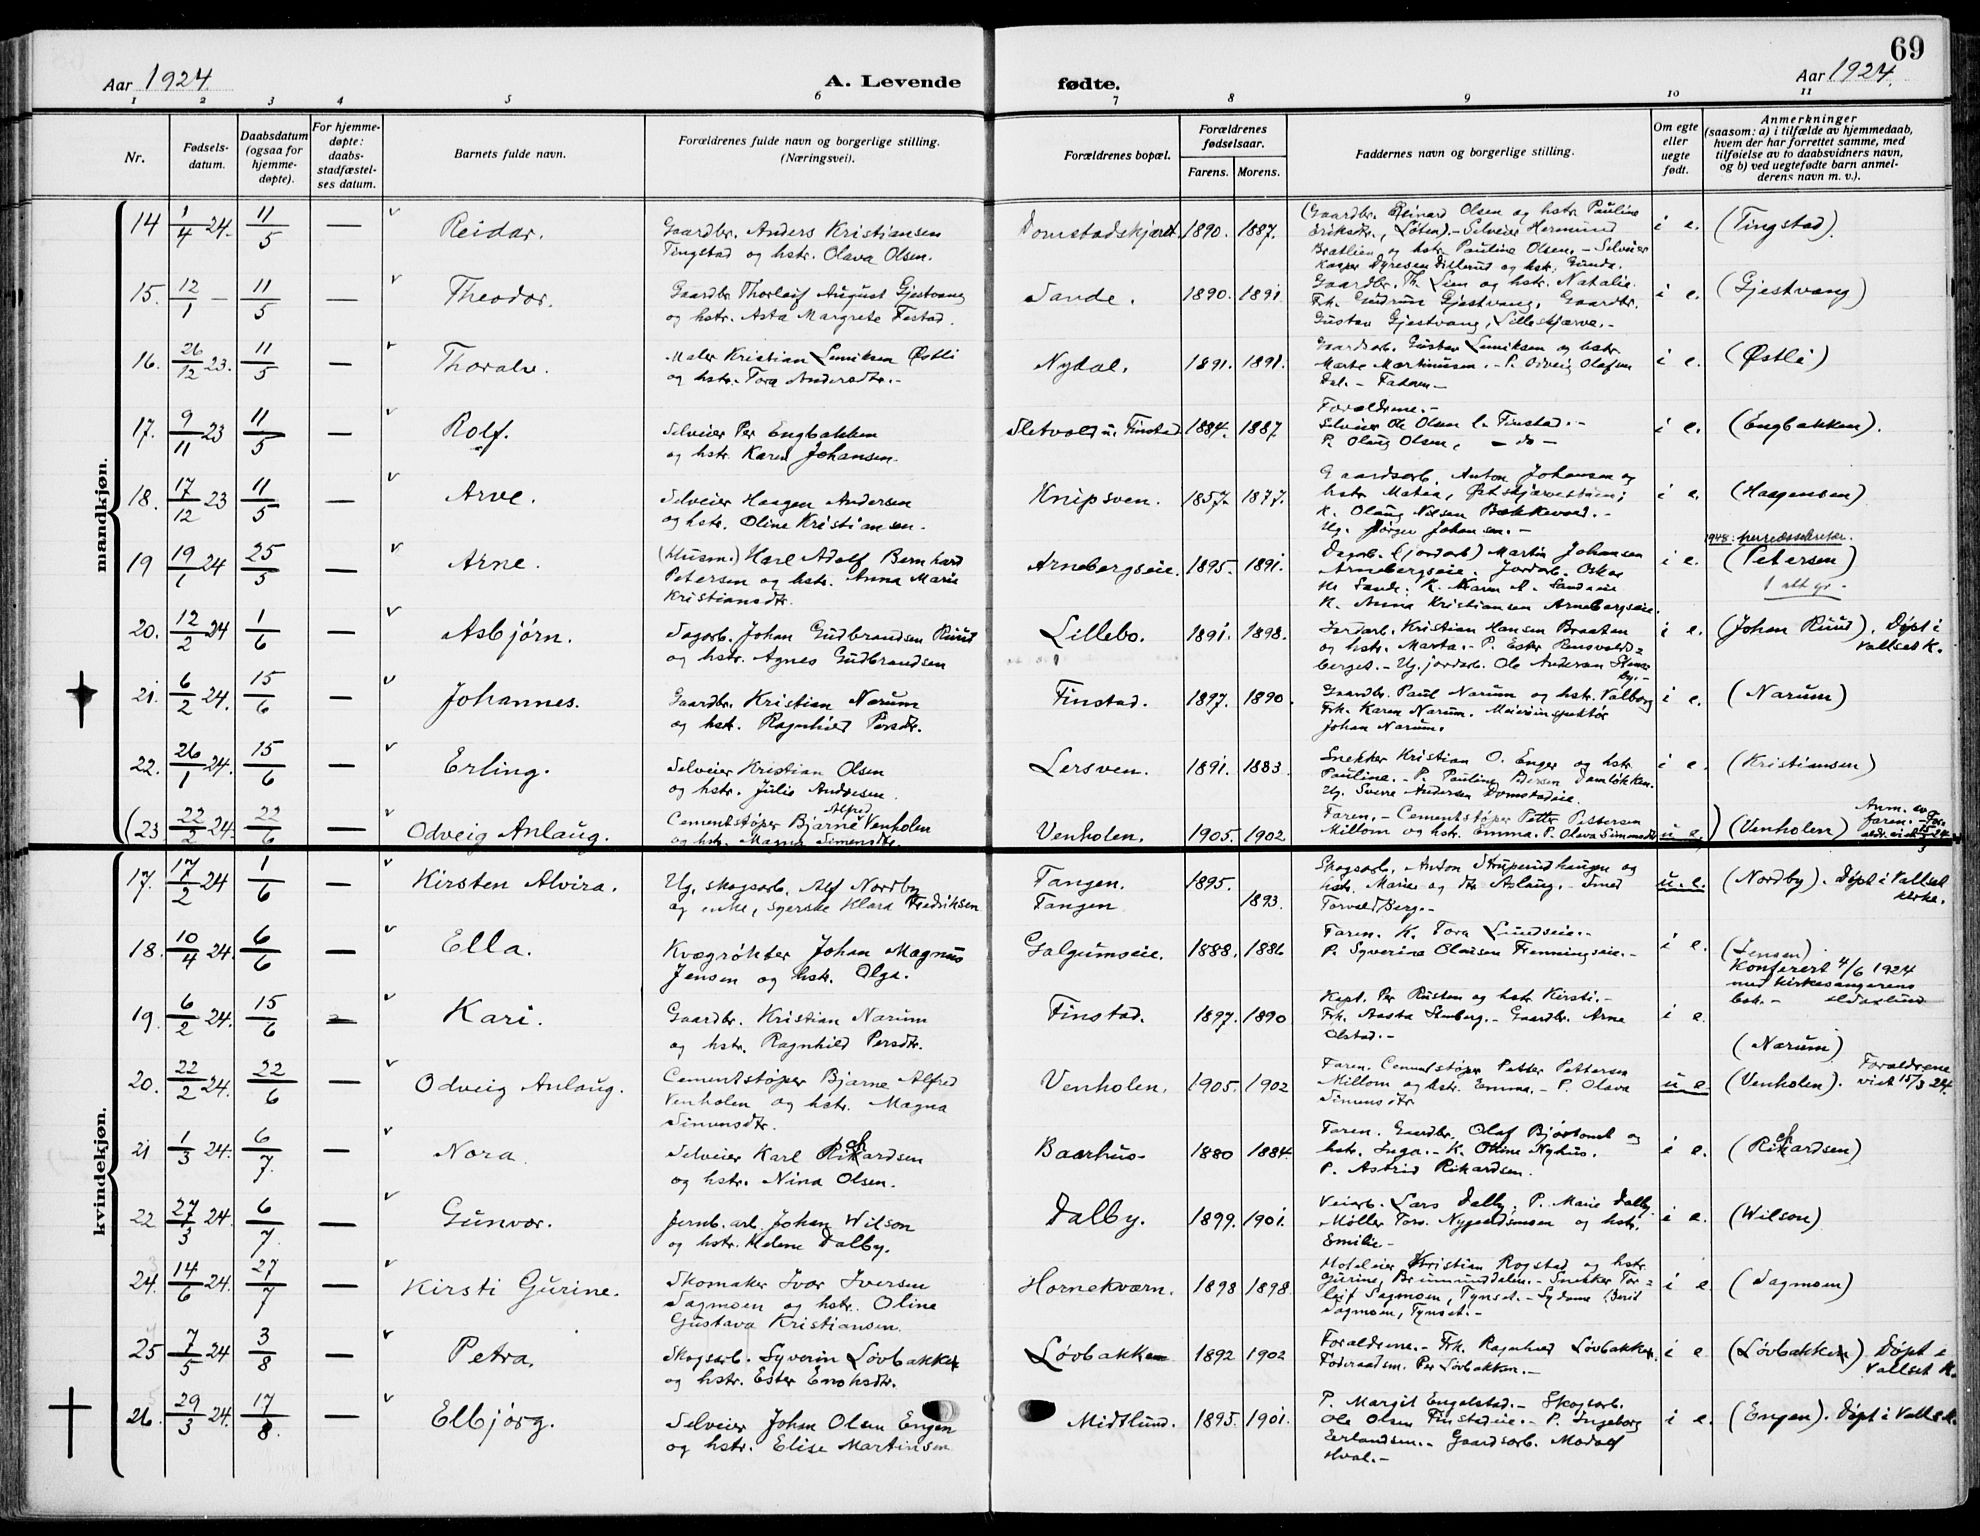 69
Aar 1924 A. Levende fødte. Aar 1924.
1 2 3 4 5 6 7 8 9 10 11
Nr. Fødselsdatum. Daabsdatum (ogsaa for hjemmedøpte). For hjemmedøpte: daabsstadfæstelses datum. Barnets fulde navn. Forældrenes fulde navn og borgerlige stilling. (Næringsvei). Forældrenes bopæl. Forældrenes fødselsaar. Farens. Morens. Faddernes navn og borgerlige stilling. Om egte eller uegte født. Anmerkninger (saasom: a) i tilfælde av hjemmedaab, hvem der har forrettet samme, med tilføielse av to daabsvidners navn, og b) ved uegtefødte barn anmelderens navn m. v.).
mandkjøn.
14 1/4 24. 11/5 — Reidar. Gaardbr. Anders Kristiansen Tingstad og hstr. Olava Olsen. Domstadskjæret. 1890. 1887. (Gaardbr. Reinard Olsen og hstr. Pauline Eriksdtr., Løten). – Selveier Hermund Bratlien og hstr. Pauline Olsen. – Selveier Kasper Dyresen Dillerud og hstr. Gunda. i e. (Tingstad).
15. 12/1 – 11/5 — Theodor. Gaardbr. Thorleif August Gjestvang og hstr. Asta Margrete Festad. Sande. 1890. 1891. Gaardbr. Th. Lien og hstr. Natalie. Frk. Gudrun Gjestvang, Gaardbr. Gustav Gjestvang, Lilleskjærve. – i e. (Gjestvang)
16. 26/12 23. 11/5 — Thoralv. Maler Kristian Østli og hstr. Tora Andersdtr. – Nydal. 1891. 1891. Gaardsarb. Gustav og hstr. Marte Martinusen. – P. Olafsen Dal. – Faderen – i e. (Østli)
17. 9/11 23 11/5 — Rolf. Selveier Per Engbakken og hstr. Karen Johansen. Sletvold u. Finstad 1884. 1887 Forældrene. – Selveier Ole Olsen l. Finstad. – P. Olaug Olsen, – do – i e. (Engbakken).
18. 17/12 23 11/5 — Arve. Selveier Haagen Andersen og hstr. Oline Kristiansen. Knipsven. 1857. 1877. Gaardsarb. Anton Johansen og hstr. Matea, K. Olaug Nilsen Bækkevold. – Ug. Jørgen Johansen. – i e. (Haagensen)
19 19/1 24 25/5 — Arne. (Husm.) Karl Adolf Bernhard Petersen og hstr. Anna Marie Kristiansdtr. Arnebergseie. 1895. 1891. Dagarb. (jordarb) Martin Johansen Arnebergseie. Jordarb. Oskar M. Sande. K. Karen A. Sandeeie K. Anna Kristiansen Arnebergseie. i e. 1948: herredssekretær. (Petersen) 1 att gr. –
20. 12/2 24 1/6 — Asbjørn. Sagarb. Johan Gudbrandsen Ruud og hstr. Agnes Gudbrandsen Lillebo. 1891. 1898. Jordarb. Kristian Hansen Braaten og hstr. Marta. – P. Ester – Ug. jordarb. Ole Andersen i e. (Johan Ruud). Døpt i Vallset K.
21. 6/2 24. 15/6 — Johannes. Gaardbr. Kristian Narum og hstr. Ragnhild Persdtr. Finstad. 1897. 1890. Gaardbr. Paul Narum og hstr. Valborg Frk. Karen Narum. Meieriinspektør Johan Narum. i e. (Narum)
22. 26/1 24. 15/6 — Erling. Selveier Kristian Olsen og hstr. Julie Andresen. Lersven. 1891. 1883. Snekker Kristian O. Enger og hstr. Pauline. – P. Pauline Pedersen Damløkken. Ug. Sverre Andersen Domstadeie. i e. (Kristiansen)
(23 22/2 24. 22/6 — Odveig Anlaug. Cementstøper Bjarne Alfred Venholen og hstr. Magna Simensdtr. Venholen. 1905. 1902. Faren. – Cementstøper Petter Pettersen Millom og hstr. Emma. P. Olava Simensdtr. u e.) (Venholen) Anm. av faren. –
kvindekjøn.
17. 17/2 24 1/6 — Kirsten Alvira. Ug. skogsarb. Alf Nordby og enke, syerske Klara Fredriksen Tangen. Tangen 1895. 1893. Skogsarb. Anton Struperudhaugen og hstr. Marie og dtr Aslaug. – Smed Torvald Berg. – u. e. (Nordby). Døpt i Vallset kirke.
18. 10/4 24. 6/6 — Ella. Kvægrøkter Johan Magnus Jensen og hstr. Olga. Galgumseie. 1888. 1886 Faren. K. Tora Lundseie. – P. Syverine Olaisen Frenningseie. – i e. (Jensen) Konferert 4/6 1924 med kirkesangerens bok. –
19. 6/2 24. 15/6 — Kari. Gaardbr. Kristian Narum og hstr. Ragnhild Persdtr. Finstad. 1897. 1890 Kapt. Per Rusten og hstr Kirsti. – Frk. Aasta Stenberg. – Gaardbr. Arne Olstad. – i e. (Narum)
20. 22/2 24. 22/6 — Odveig Anlaug. Cementstøper Bjarne Alfred Venholen og hstr. Magna Simensdtr. Venholen. 1905. 1902 Faren. Cementstøper Petter Pettersen Millom og hstr. Emma. – P. Olava Simensdtr u e. (Venholen). Forældrene viet 15/3 24.
21 1/3 24. 6/7 — Nora. Selveier Karl Rikardsen og hstr. Nina Olsen. Baarhus. 1880 1884. Faren. Gaardbr. Olaf Bjørtomt og hstr. Inga. – K. Oline Nyhus. P. Astrid Rikardsen. i e. (Rikardsen)
22 27/3 24. 6/7 — Gunvor. Jernb. arb. Johan Wilson og hstr. Helene Dalby. Dalby. 1899. 1901. Veiarb. Lars Dalby. P. Marie Dalby. Møller Torv. Nygaardsmoen og hstr. Emilie – i e. (Wilson)
24. 14/6 24. 27/7 — Kirsti Gurine. Skomaker Ivar Iversen Sagmoen og hstr. Oline Gustava Kristiansen. Hornekværn. 1898 1898. Hoteleier Kristian Rogstad og hstr. Gurine, Brumunddalen. – Snekker Torleif Sagmoen, Tynset. – Sydame Berit Sagmoen, Tynset. – i e. (Sagmoen)
25 7/5 24 3/8 — Petra. Skogsarb. Syverin Løvbakken og hstr. Ester Enoksdtr. Løvbakken 1892 1902 Forældrene. – Frk. Ragnhild Løvbakken. Føderaadsm. Per Løvbakken. – i e (Løvbakken) Døpt i Vallset K.
26. 29/3 24. 17/8 — Elbjørg. Selveier Johan Olsen Engen og hstr. Elise Martinsen Midtlund. 1895. 1901. P. Margit Engelstad. – Skogsarb. Ole Olsen Finstadeie. – P. Ingeborg Erlandsen. – Gaardsarb. Modolf Hval. – i e. (Engen). Døpt i Valls. K.